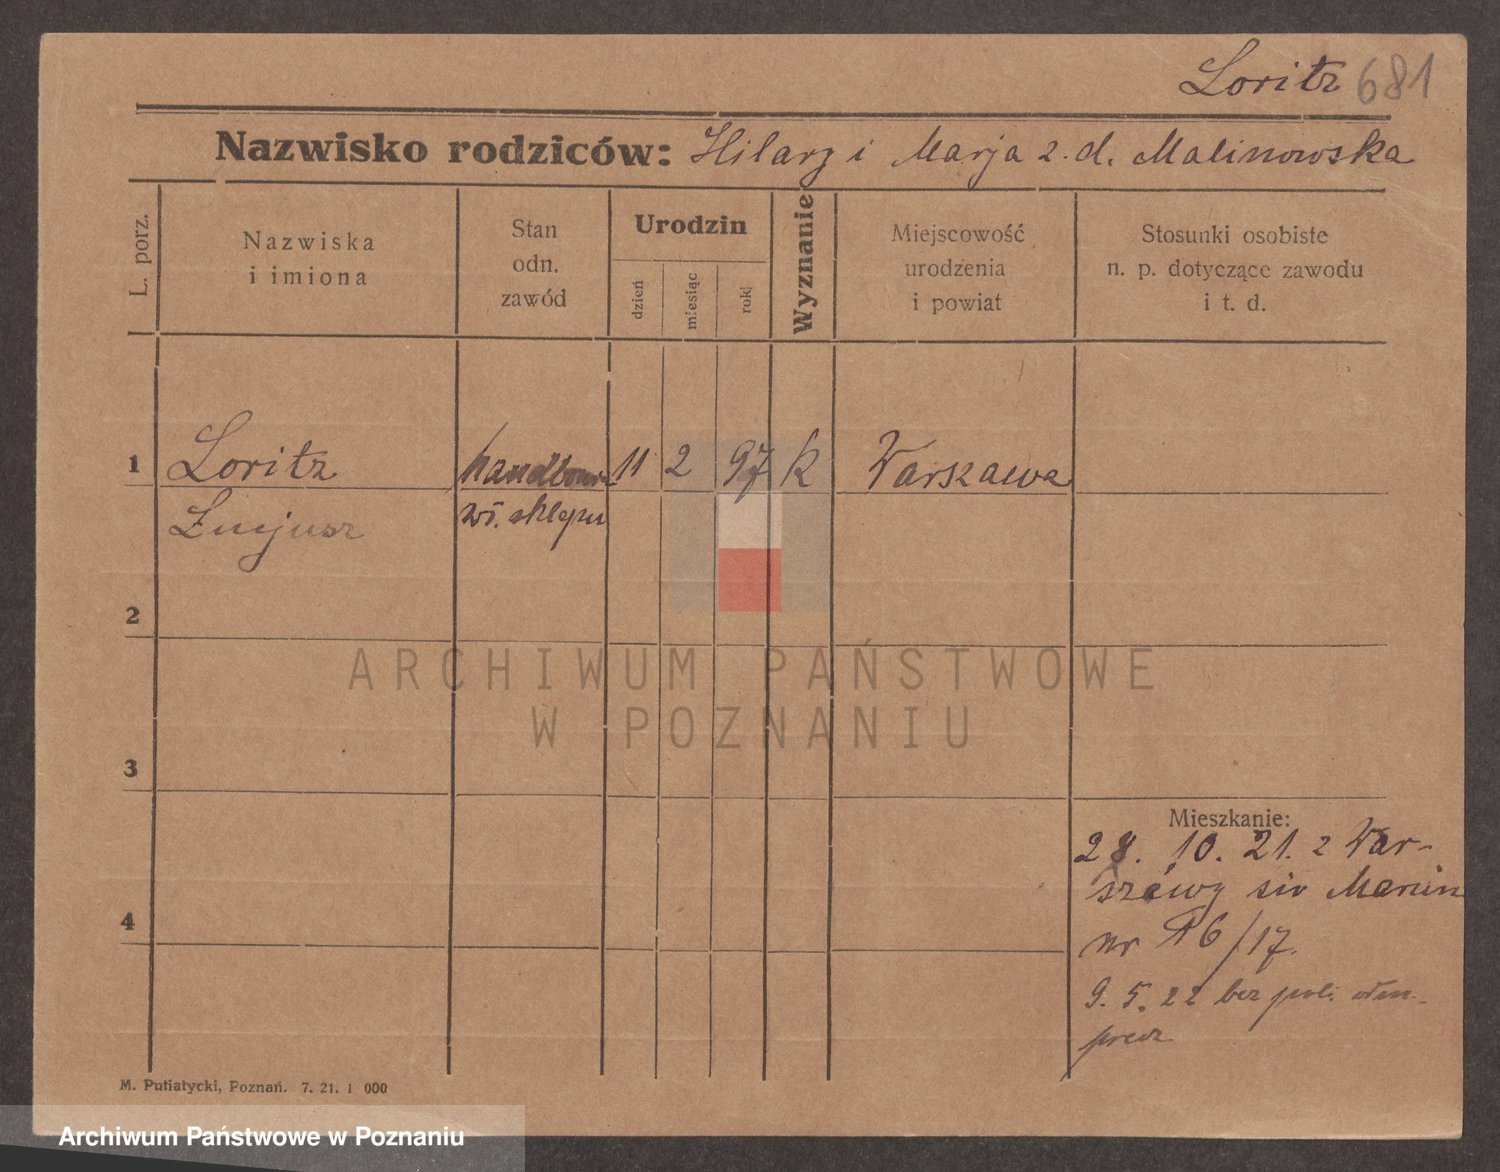 Loritz 681
Nazwisko rodziców: Hilary i Marja z. d. Malinowska
L. porz.
Nazwiska
i imiona
Stan
odn.
zawód
Urodzin
dzień
miesiąc
rok
Wyznanie
Miejscowość
urodzenia
i powiat
Stosunki osobiste
n. p. dotyczące zawodu
i t. d.
1 Loritz 11 2 97 k Warszawa
Łucjusz wł. sklepu
2
3
4
Mieszkanie:
28. 10. 21. z War-
szawy św Marcin
nr 16/17.
9. 5. 22 bez poli.
ARCHIWUM PAŃSTWOWE
W POZNANIU
M. Putiatycki, Poznań. 7. 21. 1 000
Archiwum Państwowe w Poznaniu